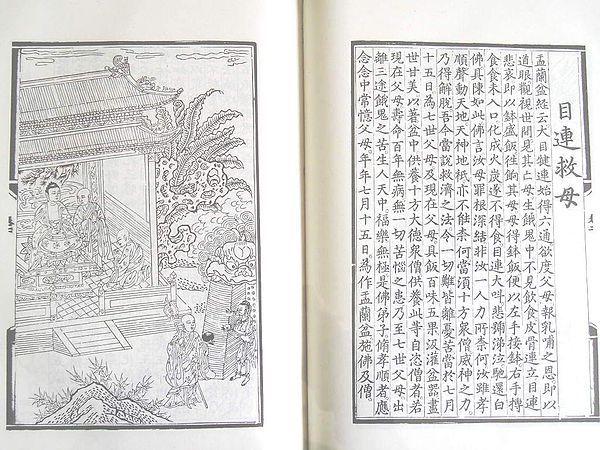 目連救母
盂蘭盆經云大目犍連始得六通欲度父母報乳哺之恩即以
道眼觀視世間見其亡母生餓鬼中不見飲食皮骨連立目連
悲哀即以鉢盛飯徃餉其母母得鉢飯便以左手接鉢右手摶
食食未入口化成火炭遂不得食目連大叫悲號涕泣馳還白
佛具陳如此佛言汝母罪根深結非汝一人力所柰何汝雖孝
順聲動天地天神地祇亦不能柰何當須十方衆僧威神之力
乃得解脫吾今當說救濟之法令一切難皆離憂苦當於七月
十五日為七世父母及現在父母具飯百味五果汲灌盆器盡
世甘美以著盆中供養十方大德衆僧供養此等自恣僧者若
現在父母壽命百年無病無一切苦惱之患乃至七世父母出
離三途餓鬼之苦生人天中福樂無極是佛弟子脩孝順者應
念念中常憶父母年年七月十五日為作盂蘭盆施佛及僧